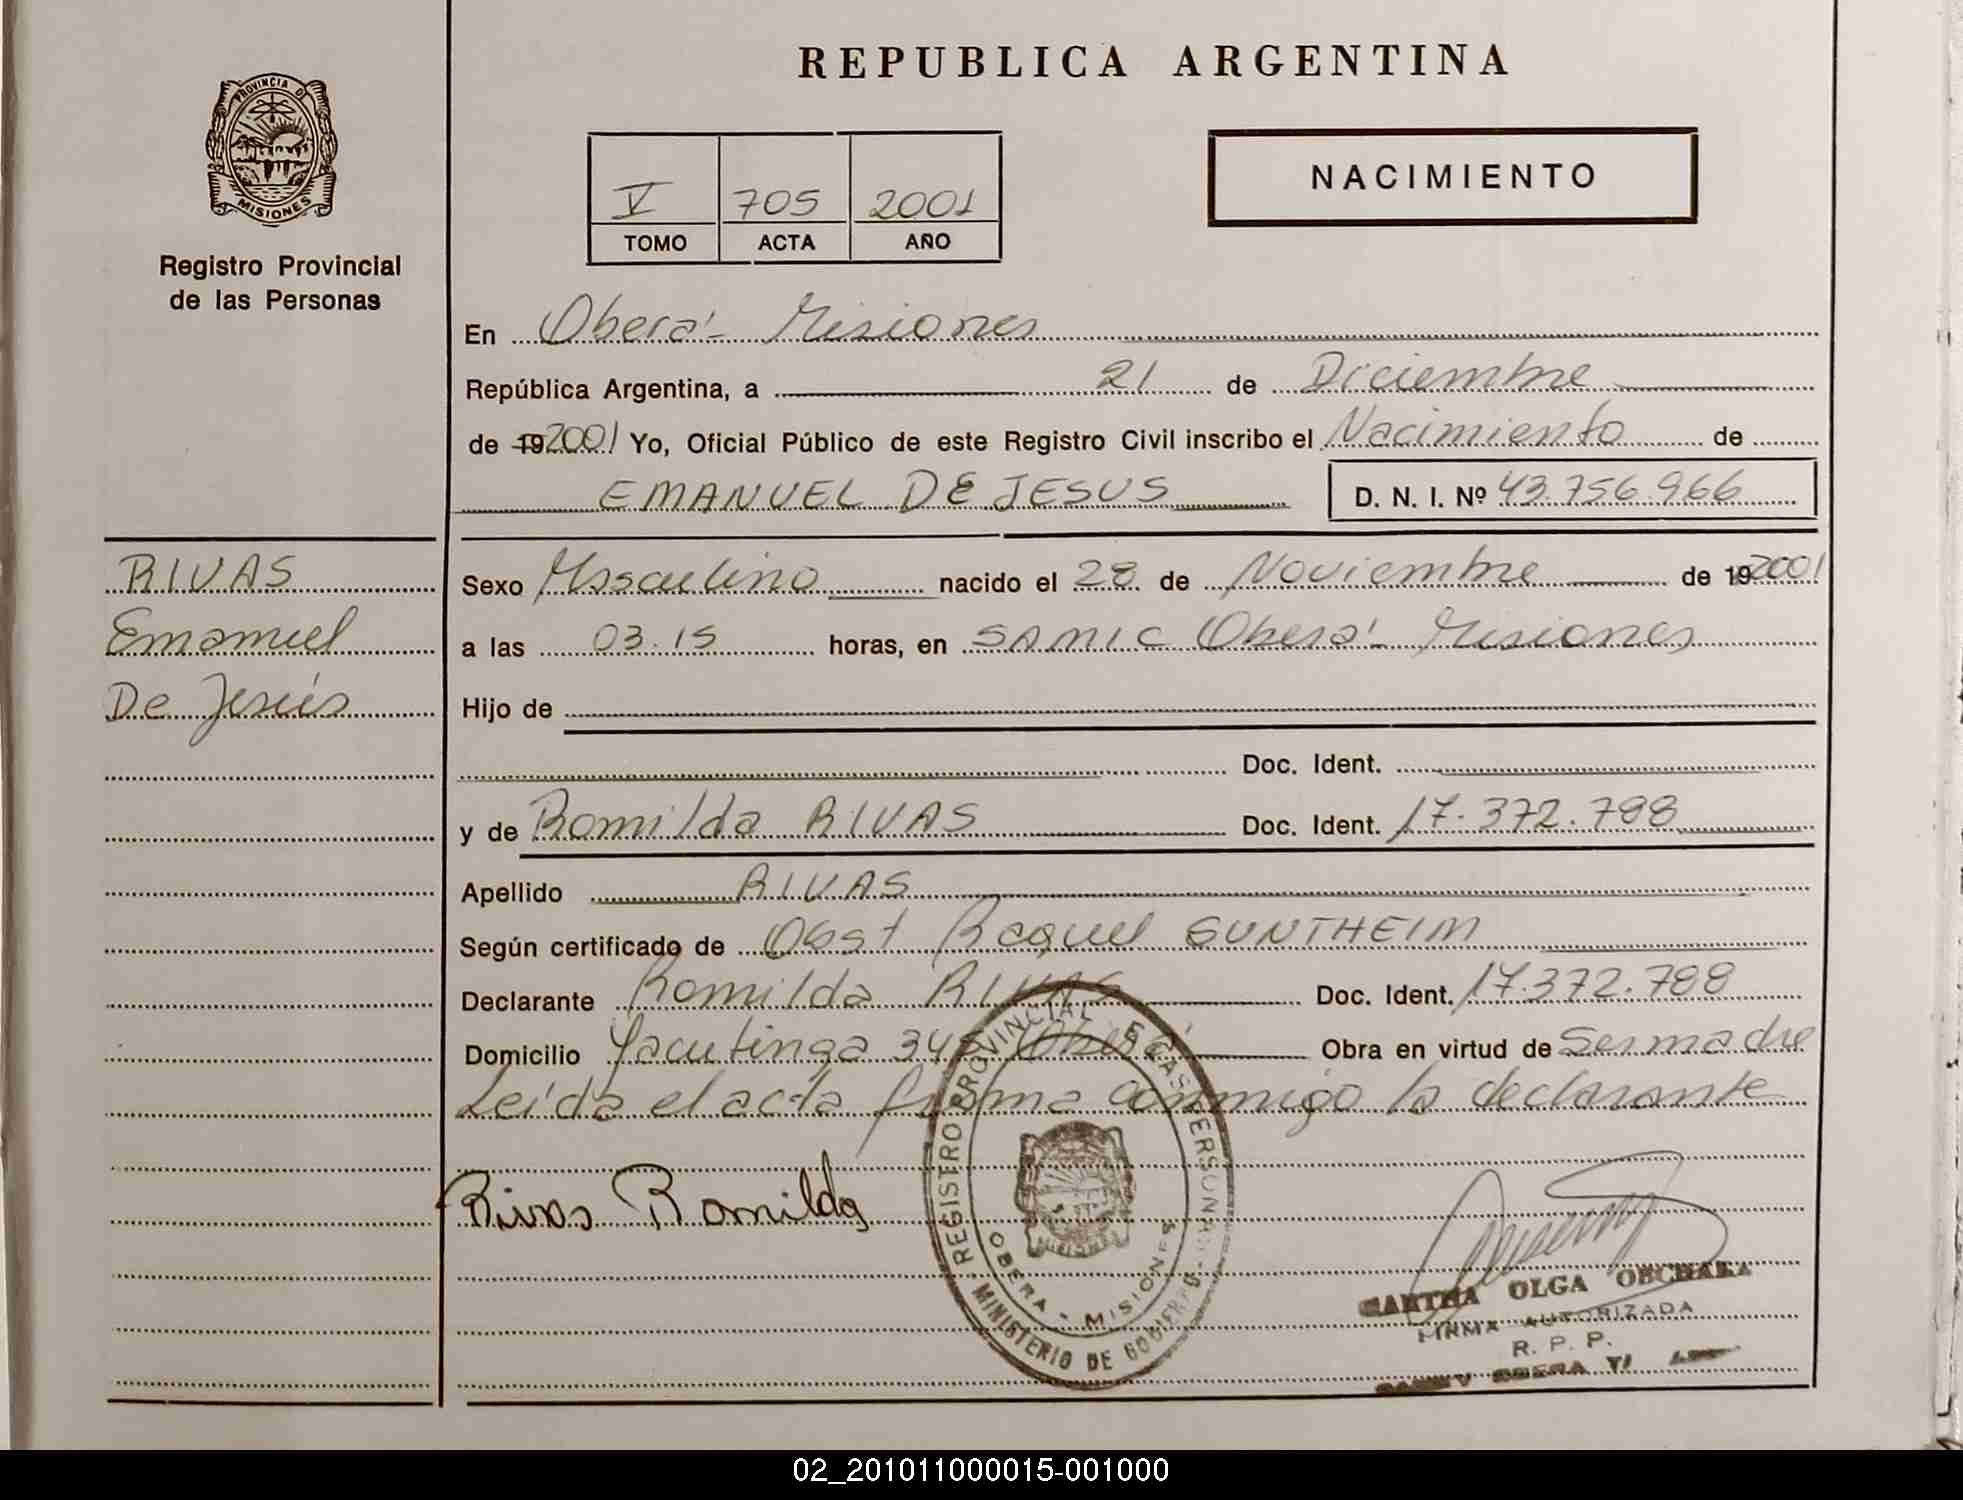 REPUBLICA ARGENTINA
PROVINCIA D
MISIONES
Registro Provincial
de las Personas
V 705 2001
TOMO ACTA AÑO
NACIMIENTO
En Oberá - Misiones
República Argentina, a 21 de Diciembre
de 19 2001 Yo, Oficial Público de este Registro Civil inscribo el Nacimiento de
EMANUEL DE JESUS D. N. I. Nº 43.756.966
RIVAS
Emanuel
De Jesús
Sexo Masculino nacido el 28 de Noviembre de 19 2001
a las 03.15 horas, en SAMIC Oberá - Misiones
Hijo de
Doc. Ident.
y de Romilda RIVAS Doc. Ident. 17.372.788
Apellido RIVAS
Según certificado de Obst Raquel GUNTHEIM
Declarante Romilda RIVAS Doc. Ident. 17.372.788
Domicilio Yacutinga 345 Oberá Obra en virtud de Ser madre
Leída el acta firma conmigo la declarante
Rivas Romilda
REGISTRO PROVINCIAL E LAS PERSONAS
OBERA - MISIONES
MINISTERIO DE GOBIERNO
OLGA
FIRMA AUTORIZADA
R. P. P.
OBERA
02_201011000015-001000